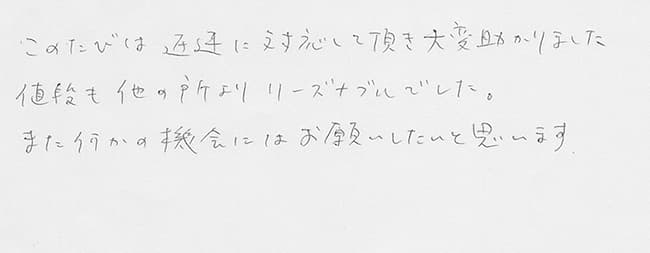 このたびは 迅速に対応して頂き大変助かりました
値段も他の所より リーズナブルでした。
また何かの機会にはお願いしたいと思います